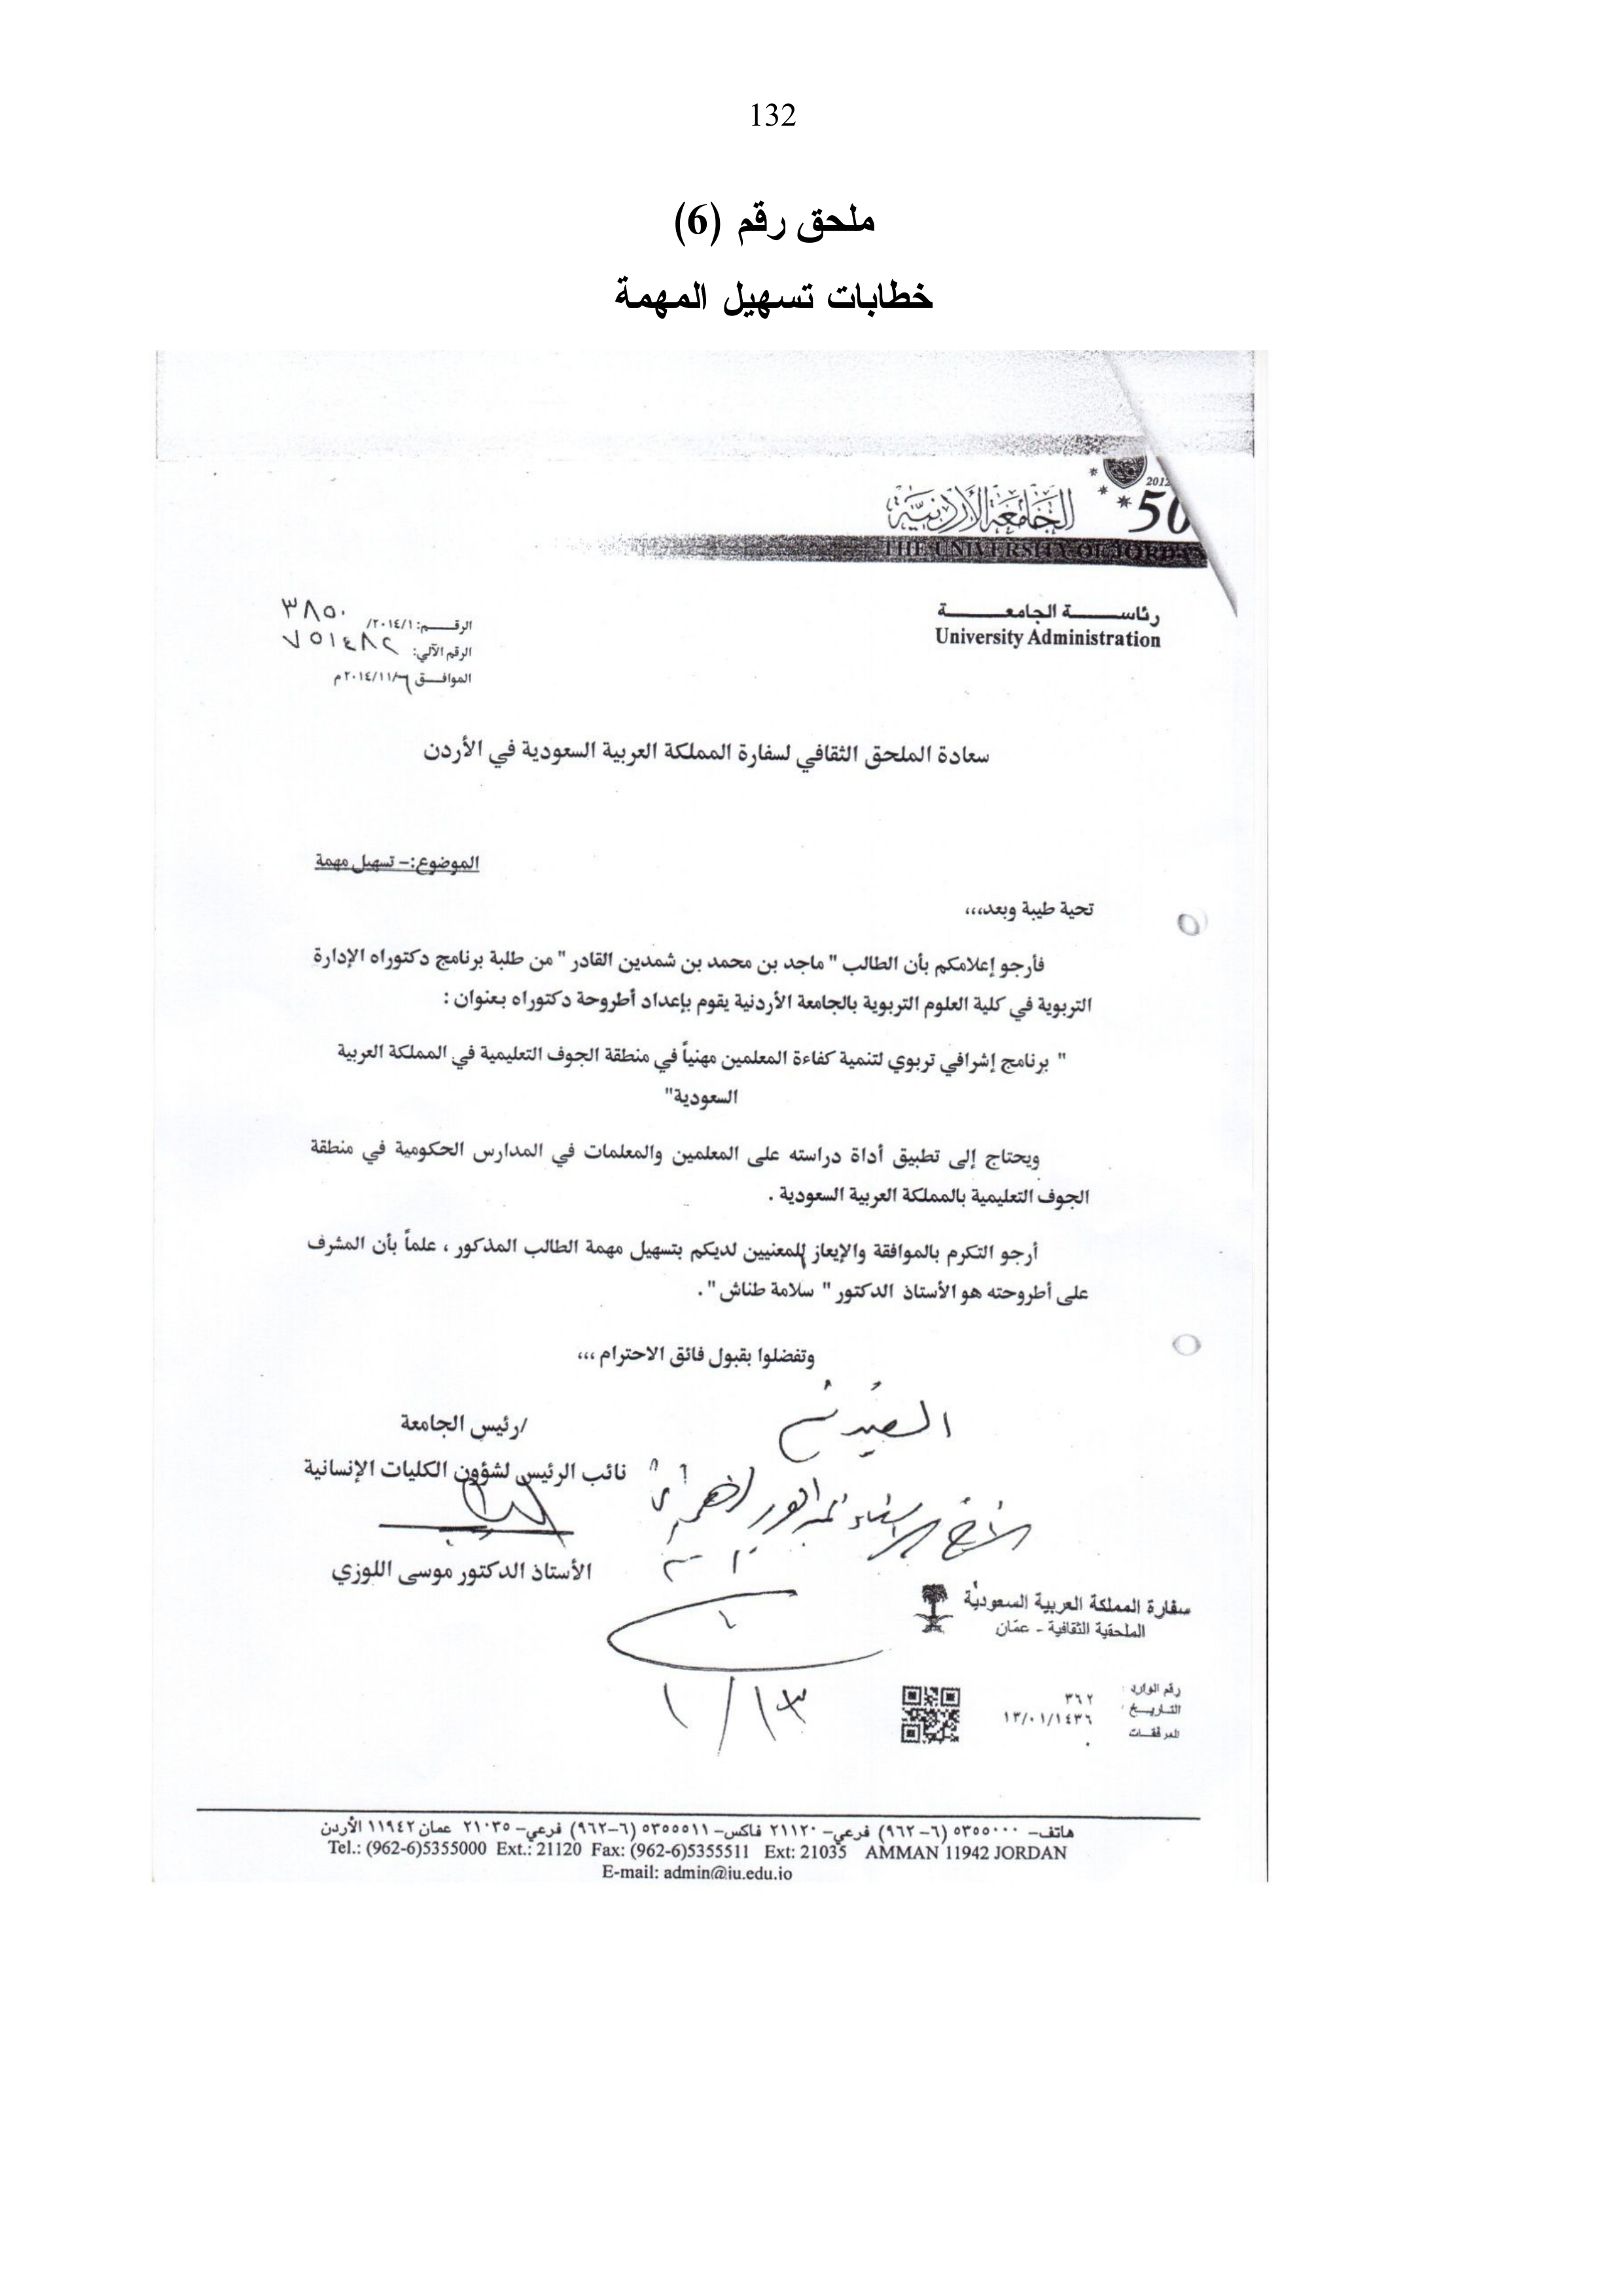 132
ملحق رقم (6)
خطابات تسهيل المهمة
2012
50
الجامعة الأردنية
THE UNIVERSITY OF JORDAN
رئاســـة الجامعـــــة
University Administration
الرقـــم: ٢٠١٤/١/ ٣٨٥٠
الرقم الآلي: ٧٥١٤٨٢
الموافـــق ٢٠١٤/١١/٦م
سعادة الملحق الثقافي لسفارة المملكة العربية السعودية في الأردن
الموضوع:- تسهيل مهمة
تحية طيبة وبعد،،،
فأرجو إعلامكم بأن الطالب " ماجد بن محمد بن شمدين القادر " من طلبة برنامج دكتوراه الإدارة
التربوية في كلية العلوم التربوية بالجامعة الأردنية يقوم بإعداد أطروحة دكتوراه بعنوان :
" برنامج إشرافي تربوي لتنمية كفاءة المعلمين مهنياً في منطقة الجوف التعليمية في المملكة العربية
السعودية"
ويحتاج إلى تطبيق أداة دراسته على المعلمين والمعلمات في المدارس الحكومية في منطقة
الجوف التعليمية بالمملكة العربية السعودية .
أرجو التكرم بالموافقة والإيعاز للمعنيين لديكم بتسهيل مهمة الطالب المذكور ، علماً بأن المشرف
على أطروحته هو الأستاذ الدكتور " سلامة طناش " .
وتفضلوا بقبول فائق الاحترام ،،،
/رئيس الجامعة
نائب الرئيس لشؤون الكليات الإنسانية
الأستاذ الدكتور موسى اللوزي
سفارة المملكة العربية السعودية
الملحقية الثقافية - عمّان
رقم الوارد : ٣٦٢
التـاريـــخ : ١٣/٠١/١٤٣٦
المرفقـات ٠
١٣/١
هاتف- ٥٣٥٥٠٠٠ (٦-٩٦٢) فرعي- ٢١١٢٠ فاكس- ٥٣٥٥٥١١ (٦-٩٦٢) فرعي- ٢١٠٣٥ عمان ١١٩٤٢ الأردن
Tel.: (962-6)5355000 Ext.: 21120 Fax: (962-6)5355511 Ext: 21035 AMMAN 11942 JORDAN
E-mail: admin@ju.edu.jo